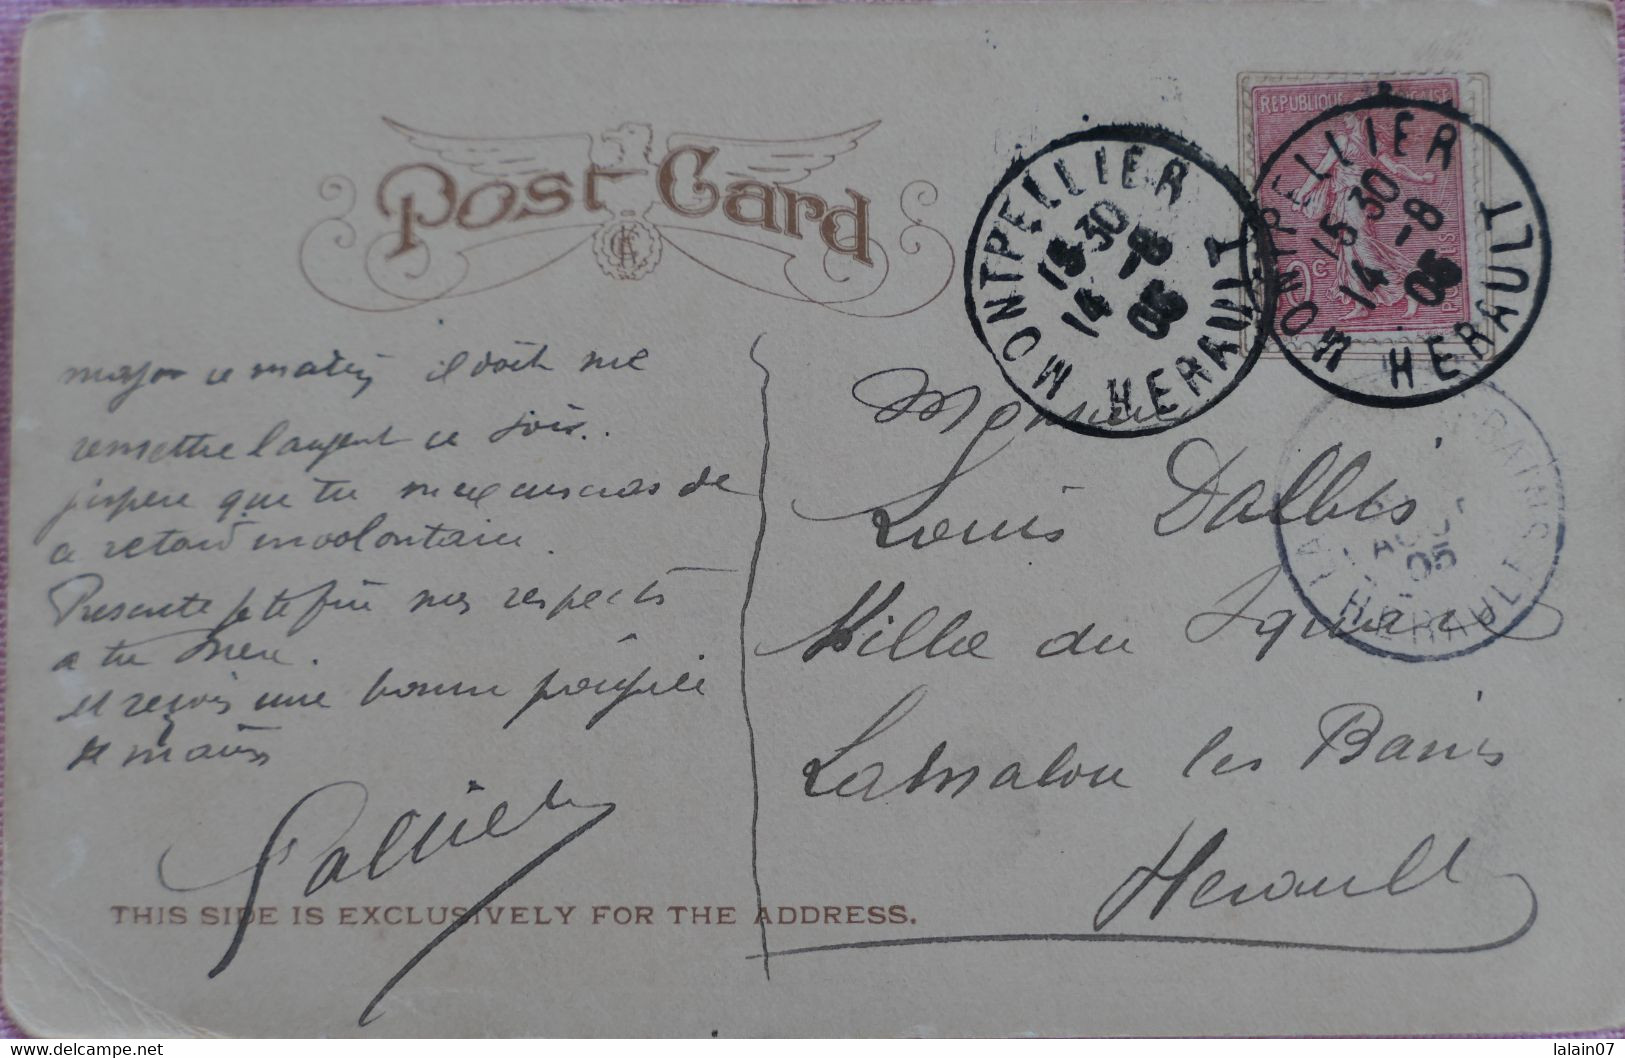 Post Card
REPUBLIQUE FRANÇAISE
POSTES
MONTPELLIER
15 30
14 -8
05
HERAULT
MONTPELLIER
15 30
14 -8
05
HERAULT
BAINS
AOUT
05
HERAULT
major ce matin il doit me
remettre l'argent ce soir.
j'espère que tu m'excuseras de
ce retard involontaire.
Présente je te prie mes respects
a ta mère.
et reçois une bonne poignée
de mains
Monsieur
Louis Dalbis
Villa du Square
Lamalou les Bains
Herault
THIS SIDE IS EXCLUSIVELY FOR THE ADDRESS.
lalain07